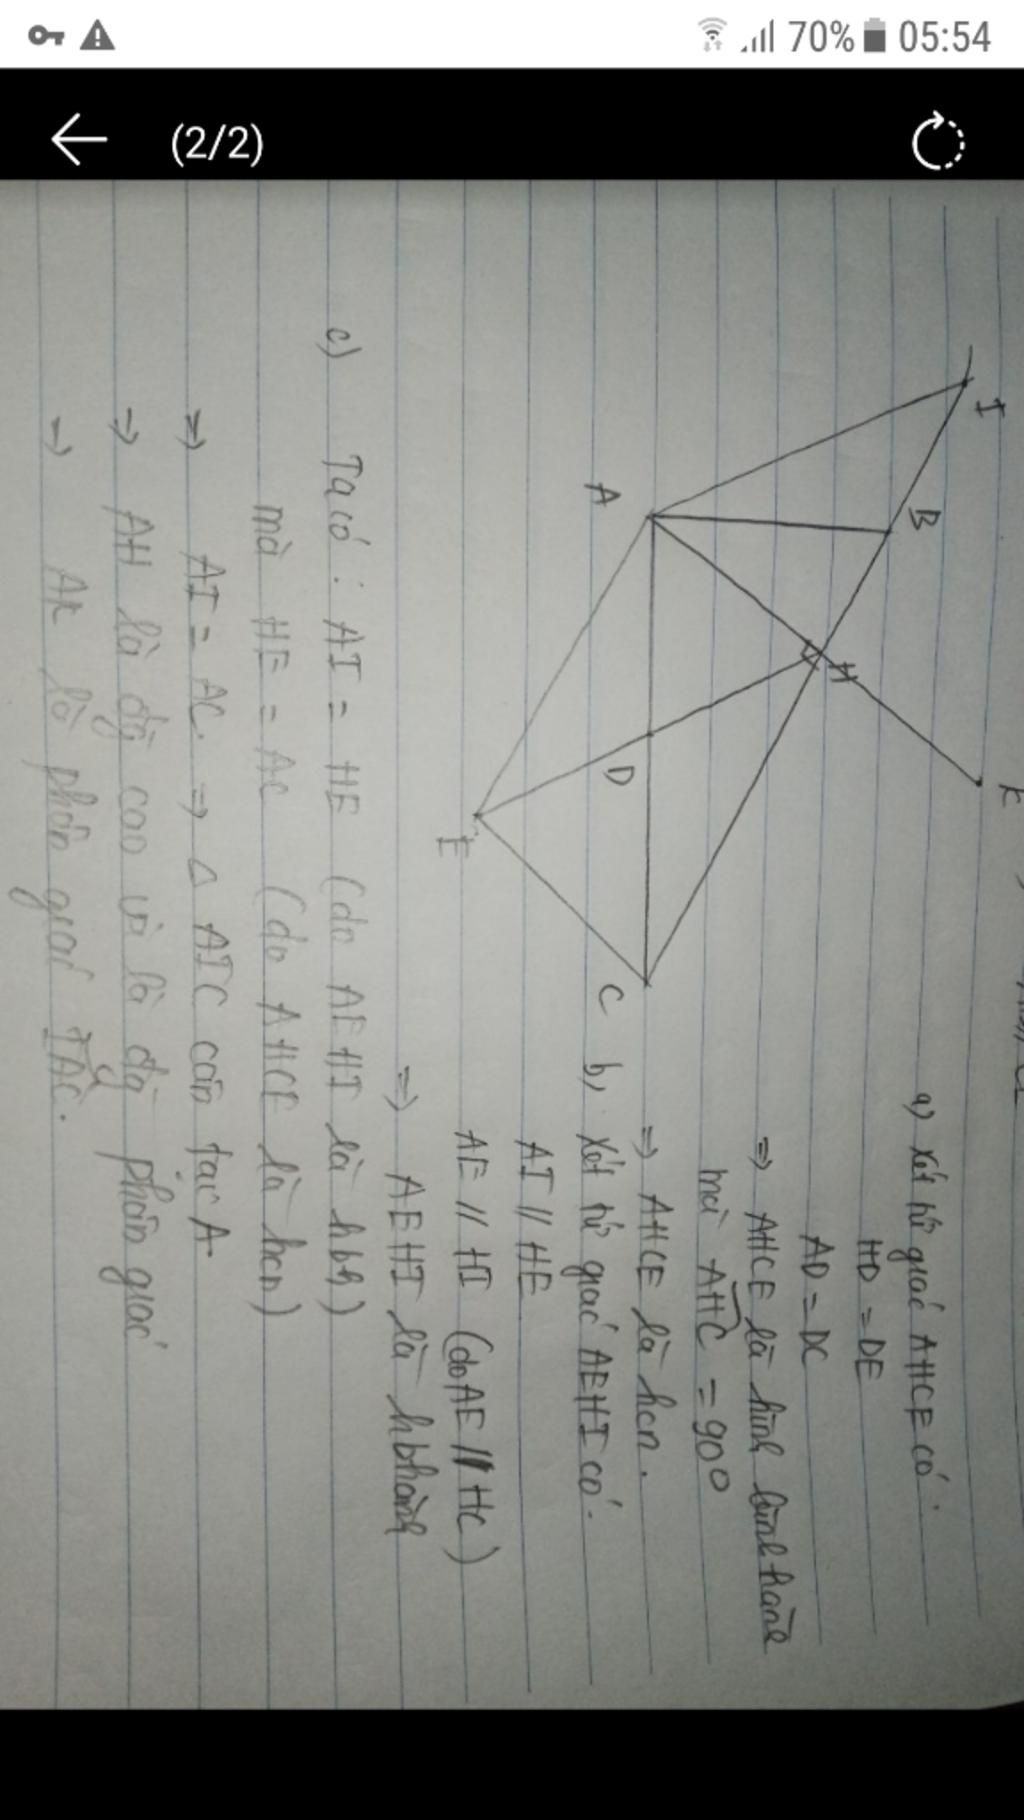 70% 05:54
(2/2)
I
B
K
A
H
D
E
C
a) Xét tứ giác AHCE có:
HD = DE
AD = DC
=> AHCE là hình bình hành
mà AHC = 90°
=> AHCE là hcn.
b, Xét tứ giác AEHI có:
AI // HE
AE // HI (do AE // HC)
=> AEHI là hbhành
c) Ta có: AI = HE (do AEHI là hbh)
mà HE = AC (do AHCE là hcn)
=> AI = AC => Δ AIC cân tại A
=> AH là đg cao vì là đg phân giác
=> AK là phân giác IAC.